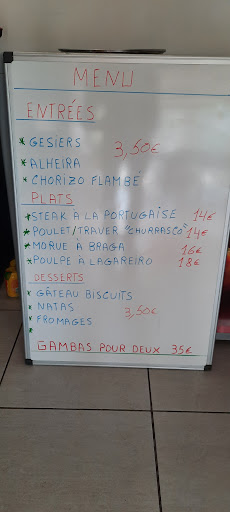 MENU
ENTRÉES
* GESIERS
3,50€
* ALHEIRA
* CHORIZO FLAMBÉ
PLATS
* STEAK A LA PORTUGAISE 14€
* POULET/TRAVER "CHURRASCO" 14€
* MORUE À BRAGA 16€
* POULPE À LAGAREIRO 18€
DESSERTS
* GÂTEAU BISCUITS
* NATAS 3,50€
* FROMAGES
*
GAMBAS POUR DEUX 35€